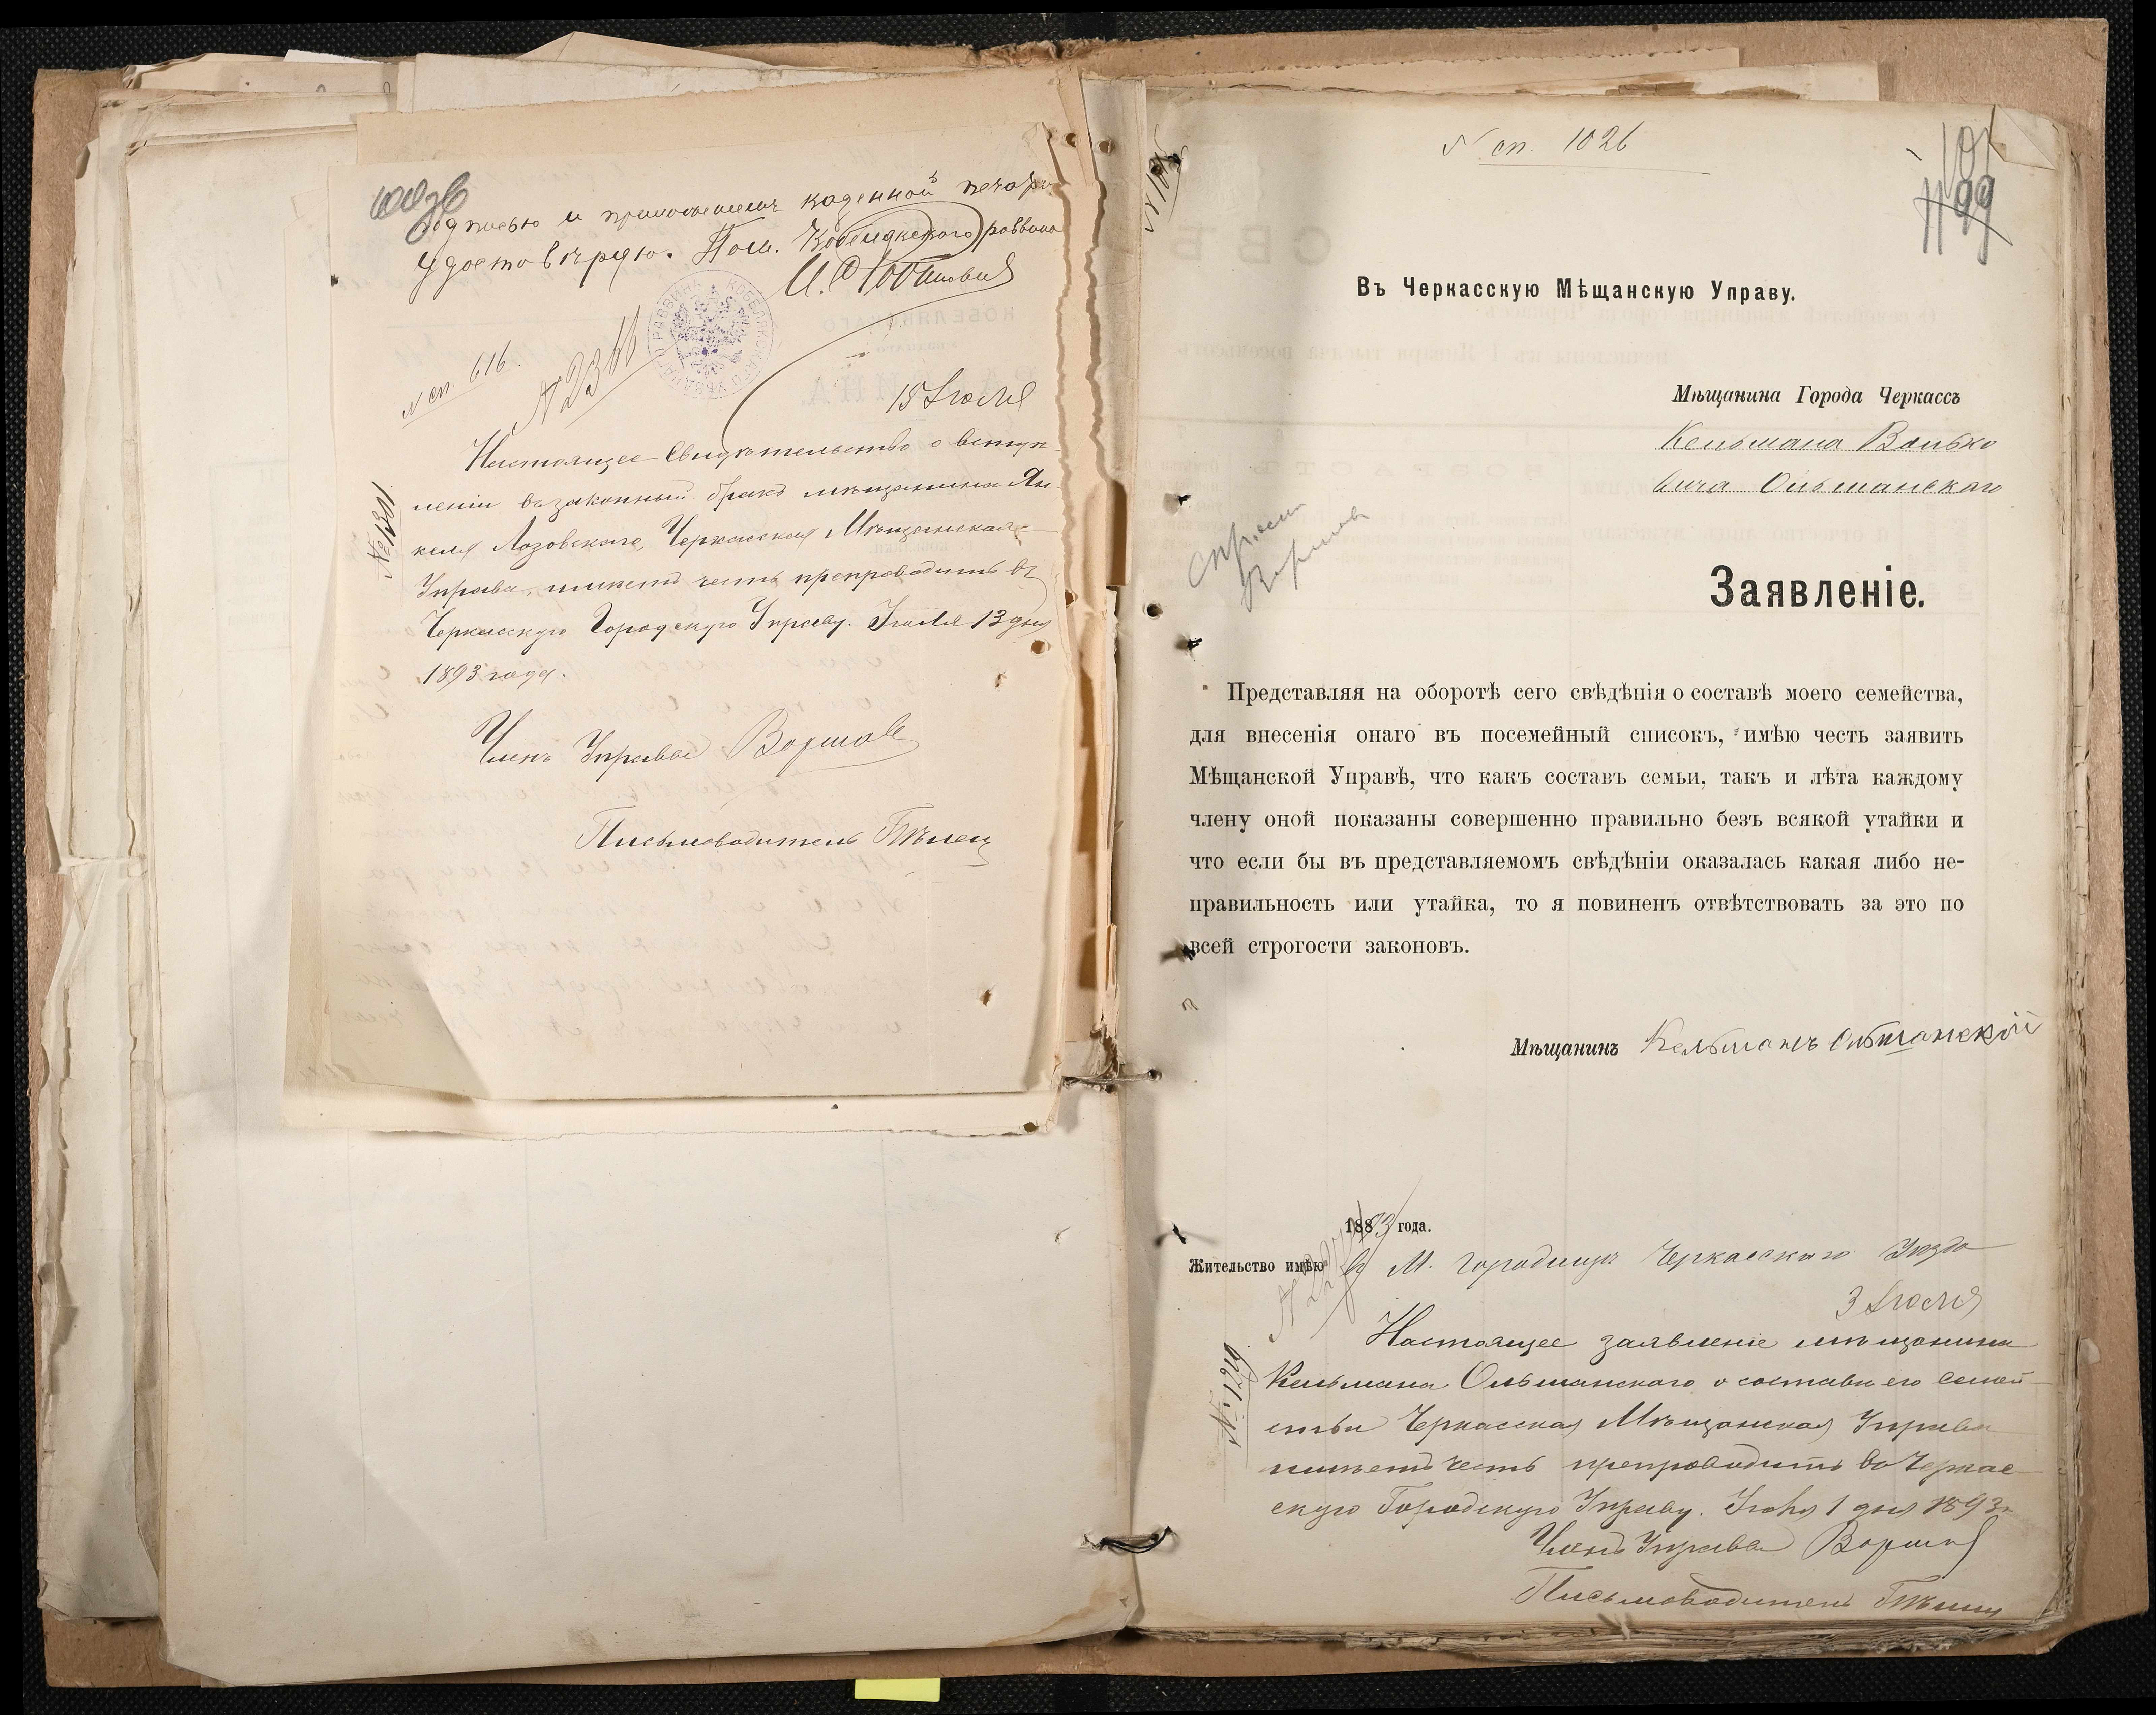 подписью и приложеніемъ казенной печати
удостовѣряю. Пом. Кобелякскаго раввина
N сп. 616.
15 Іюля
№ 1301
Настоящее Свидѣтельство о вступ-
леніи въ законный бракъ мѣщанина Ян-
келя Лозовскаго, Черкасская Мѣщанская
Управа, имѣетъ честь препроводить въ
Черкасскую Городскую Управу. Іюля 13 дня
1893 года.
Членъ Управы Воршов
Письмоводитель
N сп. 1026
101
99
Въ Черкасскую Мѣщанскую Управу.
Мѣщанина Города Черкассъ
Кельмана Волько
вича Ольшанскаго
Заявленіе.
Представляя на оборотѣ сего свѣдѣнія о составѣ моего семейства,
для внесенія онаго въ посемейный списокъ, имѣю честь заявить
Мѣщанской Управѣ, что какъ составъ семьи, такъ и лѣта каждому
члену оной показаны совершенно правильно безъ всякой утайки и
что если бы въ представляемомъ свѣдѣніи оказалась какая либо не-
правильность или утайка, то я повиненъ отвѣтствовать за это по
всей строгости законовъ.
Мѣщанинъ Кельманъ Ольшанскій
1883 года.
Жительство имѣю в М. Городище Черкасскаго Уѣзда
3 Іюля
Настоящее заявленіе мѣщанина
Кельмана Ольшанскаго о составѣ его семей-
ства Черкасская Мѣщанская Управа
имѣетъ честь препроводить во Черкас-
скую Городскую Управу. 1 дня 1893 г.
Членъ Управы Воршов
Письмоводитель